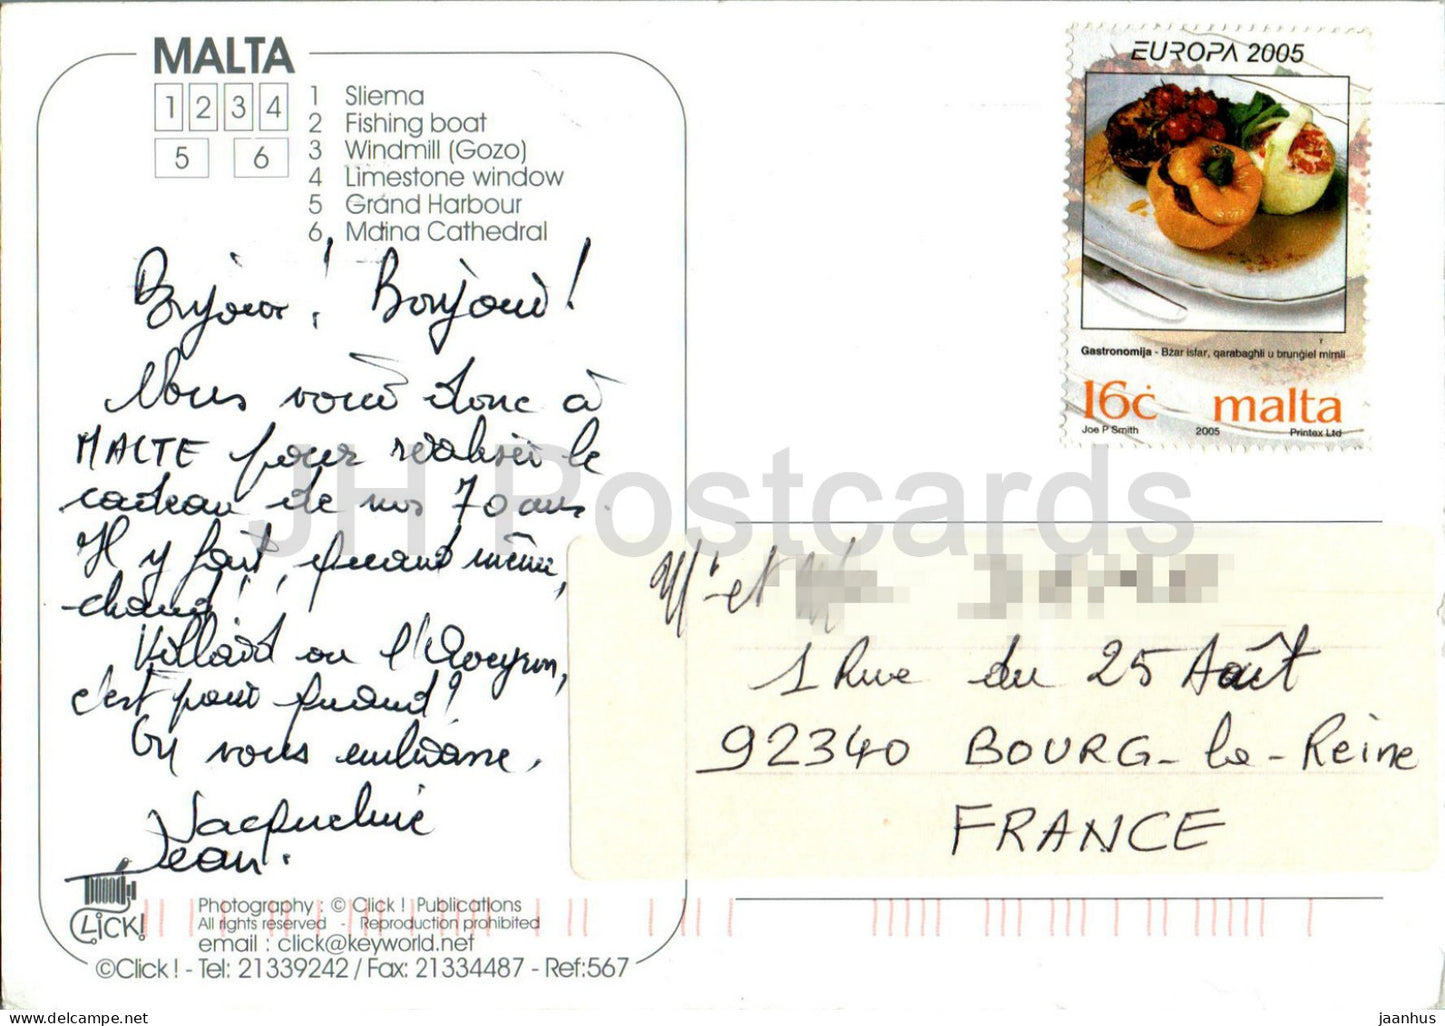 MALTA
1 2 3 4
5 6
1 Sliema
2 Fishing boat
3 Windmill (Gozo)
4 Limestone window
5 Grand Harbour
6 Mdina Cathedral
Bonjour! Bonjour!
Nous voici donc à
MALTE pour réaliser le
cadeau de nos 70 ans.
Il y fait, quand même,
chaud!
Villard ou l'Aveyron,
c'est pour quand?
On vous embrasse,
Jacqueline
Jean.
CLiCK!
Photography : © Click ! Publications
All rights reserved - Reproduction prohibited
email : click@keyworld.net
©Click ! - Tel: 21339242 / Fax: 21334487 - Ref:567
EUROPA 2005
Gastronomija - Bżar isfar, qarabagħli u brunġiel mimli
16ċ malta
Joe P Smith 2005 Printex Ltd
JH Postcards
et
1 Rue du 25 Août
92340 BOURG-la-Reine
FRANCE
My-postcards.com
jaanhus